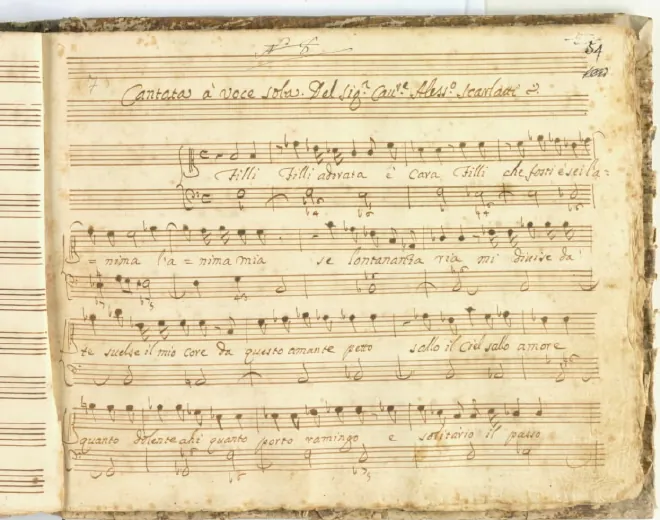 54
Cantata à voce sola. Del Sigr. Caure. Alesso. Scarlatti
Filli Filli adorata è Cara Filli che fosti è sei l'a=
=nima l'a=nima mia se lontananza ria mi diuise da
te suelse il mio core da questo amante petto sallo il Ciel sallo amore
quanto dolente ahi quanto porto ramingo e solitario il passo